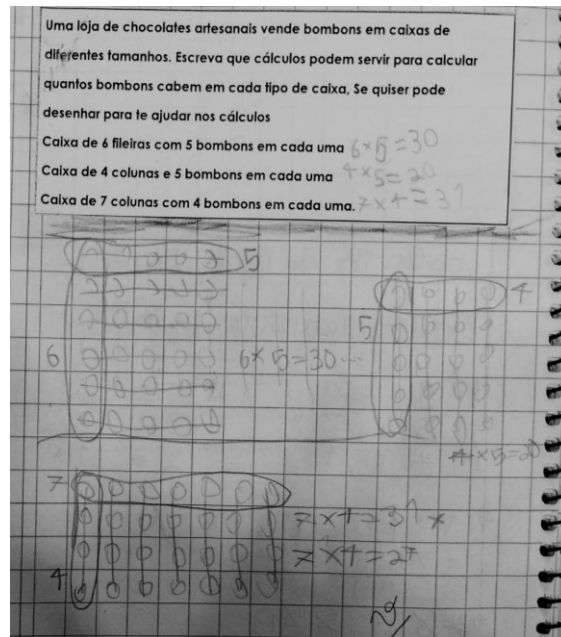 Uma loja de chocolates artesanais vende bombons em caixas de
diferentes tamanhos. Escreva que cálculos podem servir para calcular
quantos bombons cabem em cada tipo de caixa, Se quiser pode
desenhar para te ajudar nos cálculos
Caixa de 6 fileiras com 5 bombons em cada uma 6×5=30
Caixa de 4 colunas e 5 bombons em cada uma 4×5=20
Caixa de 7 colunas com 4 bombons em cada uma. 7×4=31
5
4
5
6
6×5=30
4×5=20
7
7×4=31 x
7×4=27
4